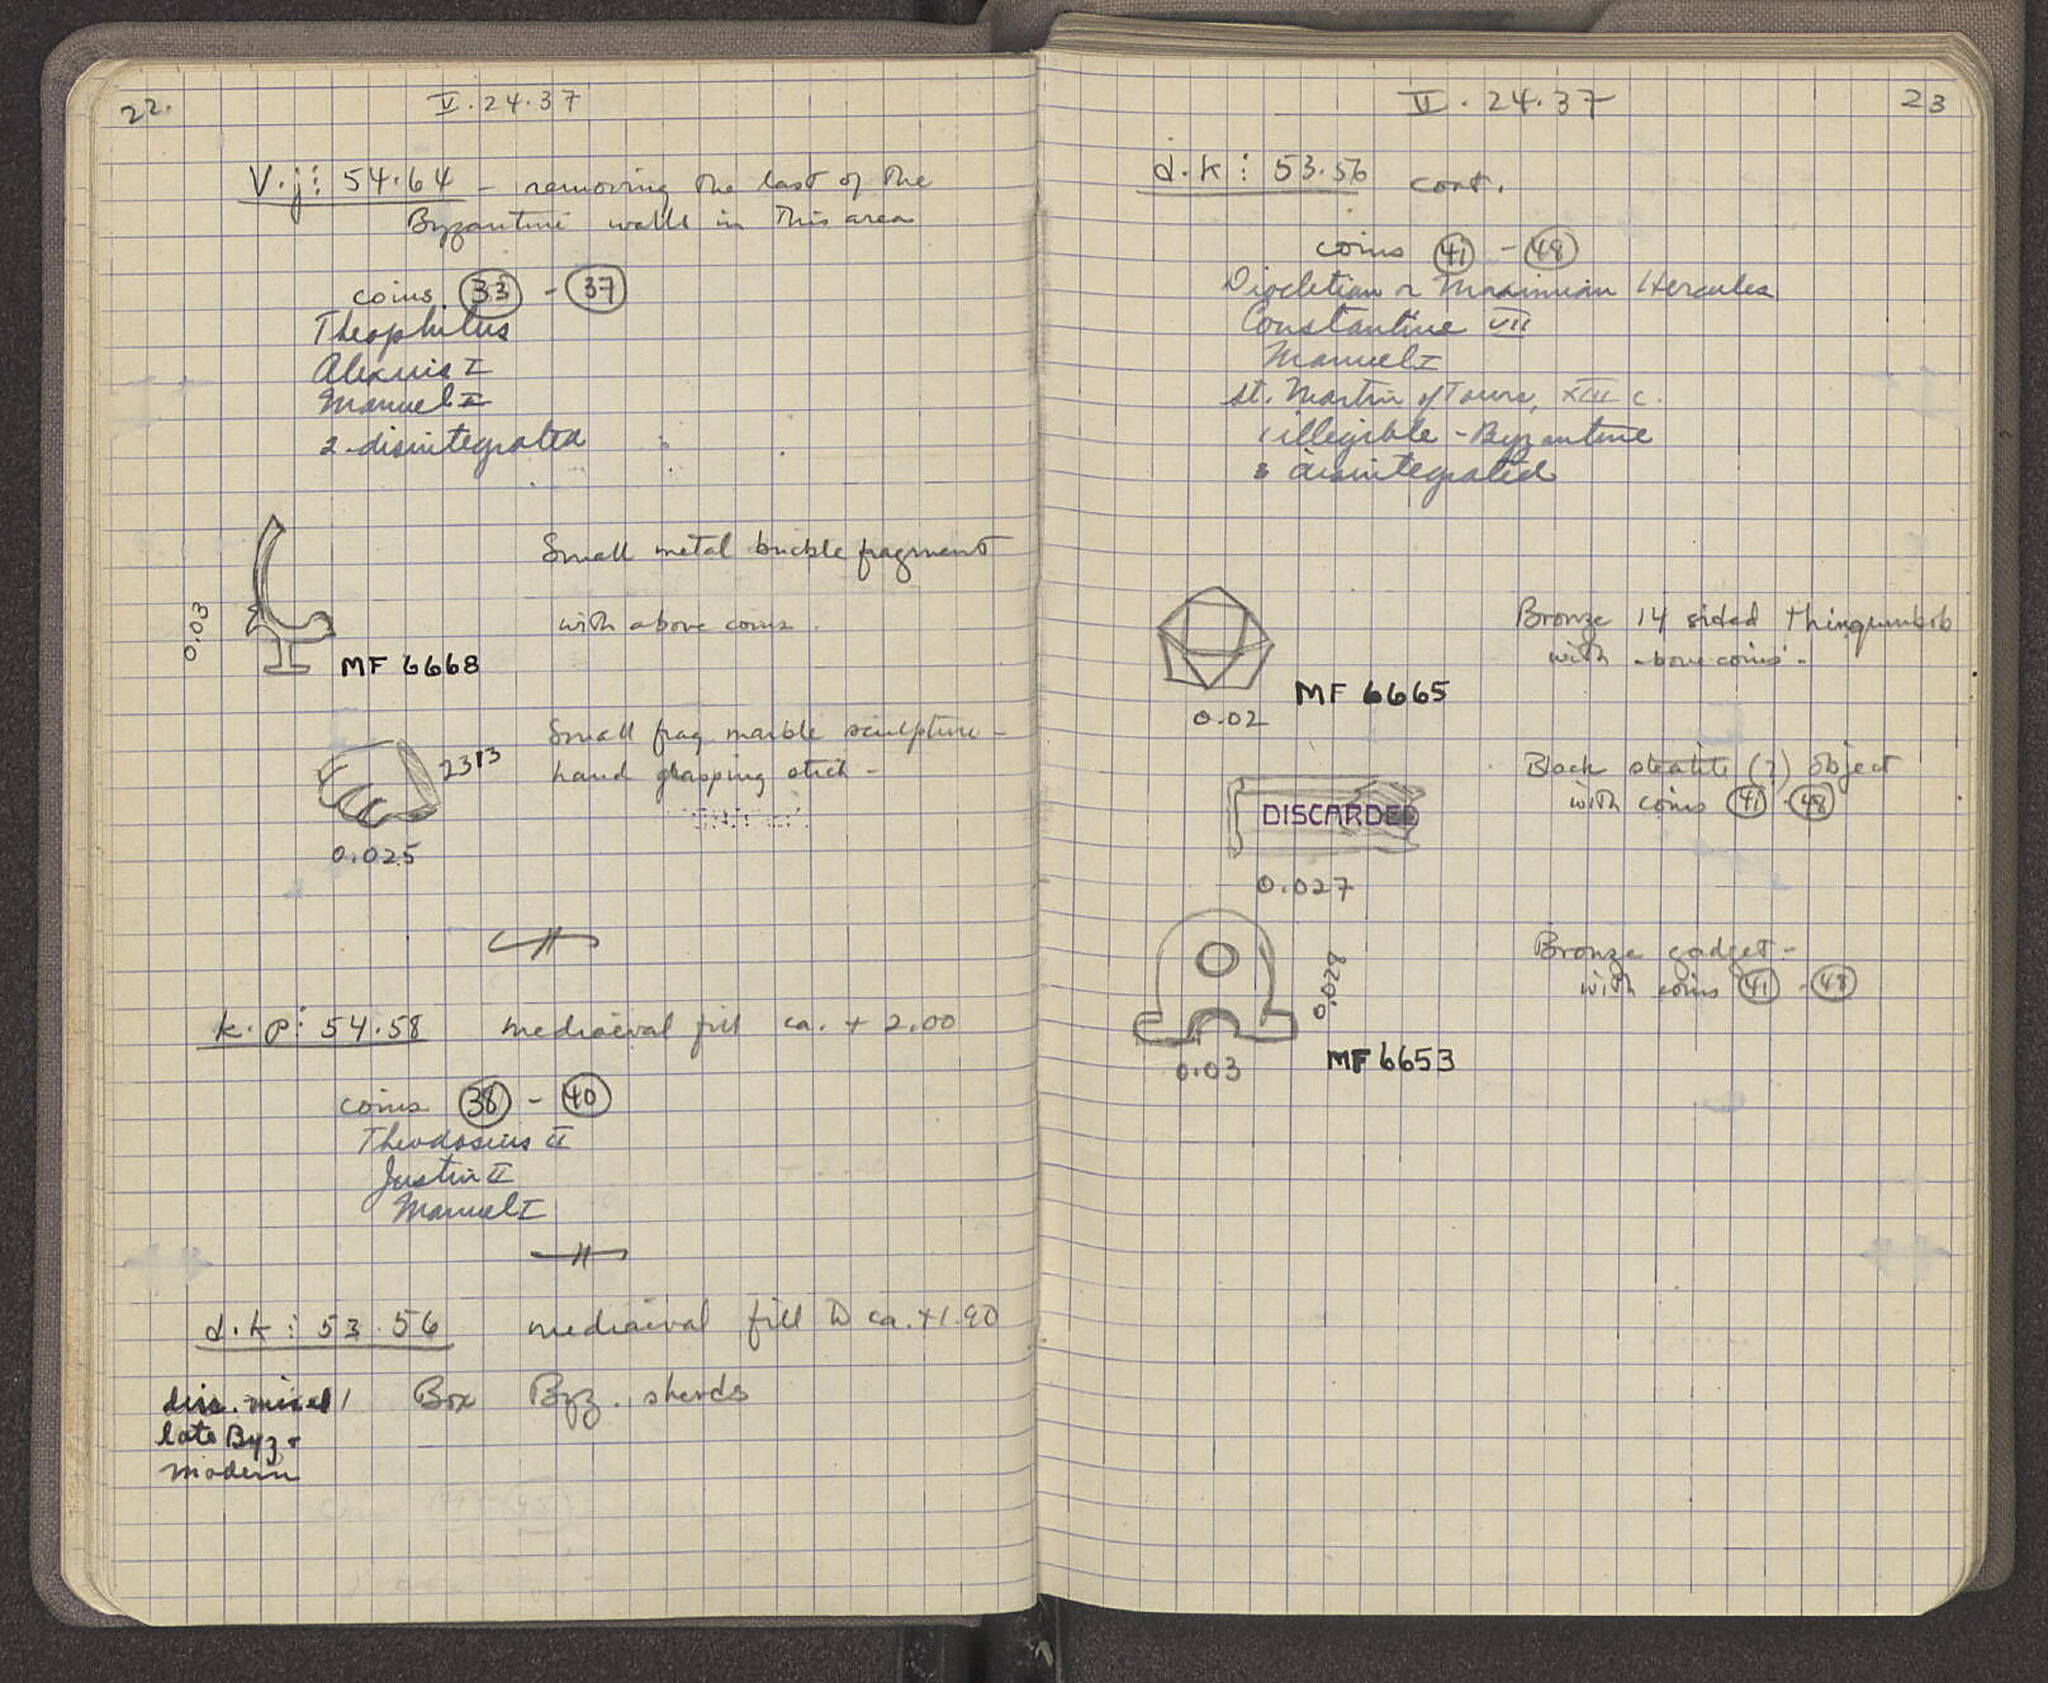 22.
V.24.37
V.j: 54.64 - removing the last of the
Byzantine walls in this area
coins 33 - 37
Theophilus
Alexius I
Manuel I
2 disintegrated
Small metal buckle fragment
with above coins.
0.03
MF 6668
Small frag marble sculpture -
hand grasping stick -
2313
0.025
k.p: 54.58 mediaeval fill ca. + 2.00
coins 38 - 40
Theodosius II
Justin II
Manuel I
d.k: 53.56 mediaeval fill to ca. +1.90
disc. mixed 1 Box Byz. sherds
late Byz +
modern
V.24.37
23
d.k: 53.56 cont.
coins 41 - 48
Diocletian or Maximian Hercules
Constantine VII
Manuel I
St. Martin of Tours, XIII c.
1 illegible - Byzantine
3 disintegrated
Bronze 14 sided thingumbob
with above coins -
MF 6665
0.02
Black steatite (?) object
with coins 41 - 48
DISCARDED
0.027
Bronze gadget -
with coins 41 - 48
0.028
0.03
MF 6653